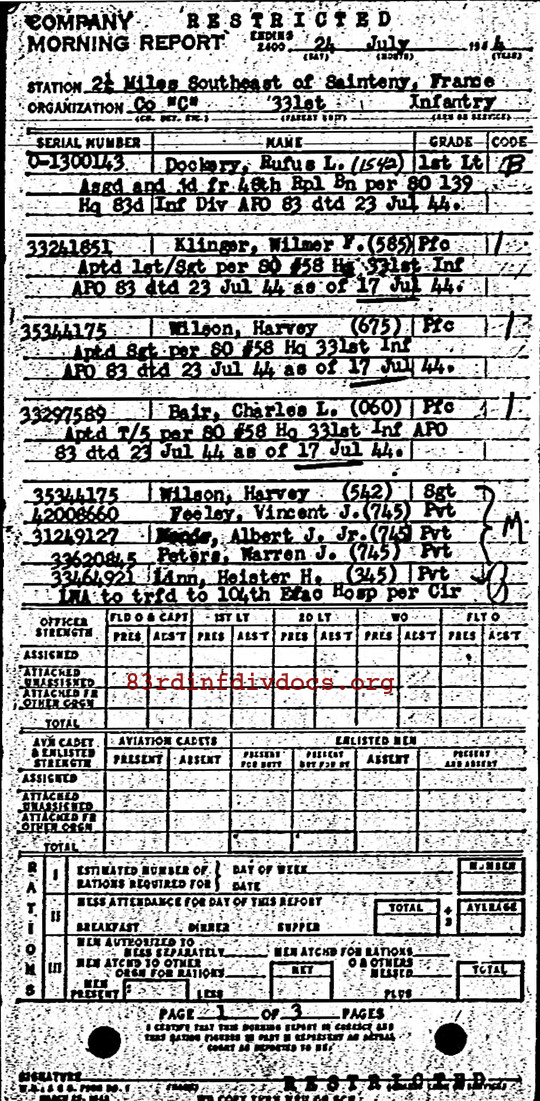 COMPANY RESTRICTED
MORNING REPORT ENDING 2400 24 July 1944
(DAY) (MONTH) (YEAR)
STATION 2½ Miles Southeast of Sainteny, France
ORGANIZATION Co "C" 331st Infantry
SERIAL NUMBER NAME GRADE CODE
O-1300143 Dockery, Rufus L. (1542) 1st Lt B
Asgd and jd fr 48th Rpl Bn per SO 139
Hq 83d Inf Div APO 83 dtd 23 Jul 44.
33241851 Klinger, Wilmer F. (585) Pfc /
Aptd 1st/Sgt per SO #58 Hq 331st Inf
APO 83 dtd 23 Jul 44 as of 17 Jul 44.
35344175 Wilson, Harvey (675) Pfc /
Aptd Sgt per SO #58 Hq 331st Inf
APO 83 dtd 23 Jul 44 as of 17 Jul 44.
33297589 Bair, Charles L. (060) Pfc /
Aptd T/5 per SO #58 Hq 331st Inf APO
83 dtd 23 Jul 44 as of 17 Jul 44.
35344175 Wilson, Harvey (542) Sgt
42008660 Feeley, Vincent J. (745) Pvt
31249127 Albert J. Jr. (745) Pvt M
33620845 Peters, Warren J. (745) Pvt
33464921 Linn, Heister H. (345) Pvt
LWA to trfd to 104th Evac Hosp per Cir
OFFICER STRENGTH FLD O & CAPT 1ST LT 2D LT WO FLT O
PRES ABS'T PRES ABS'T PRES ABS'T PRES ABS'T PRES ABS'T
ASSIGNED
ATTACHED UNASSIGNED
83rdinfdivdocs.org
ATTACHED FR OTHER ORGN
TOTAL
AVN CADET & ENLISTED STRENGTH AVIATION CADETS ENLISTED MEN
PRESENT ABSENT PRESENT FOR DUTY PRESENT NOT FOR DY ABSENT PRESENT AND ABSENT
ASSIGNED
ATTACHED UNASSIGNED
ATTACHED FR OTHER ORGN
TOTAL
RATIONS
I ESTIMATED NUMBER OF RATIONS REQUIRED FOR { DAY OF WEEK DATE NUMBER
II MESS ATTENDANCE FOR DAY OF THIS REPORT TOTAL ÷ 3 AVERAGE
BREAKFAST DINNER SUPPER
III MEN AUTHORIZED TO MESS SEPARATELY MEN ATCHD FOR RATIONS
MEN ATCHD TO OTHER ORGN FOR RATIONS NET O & OTHERS MESSED TOTAL
MEN PRESENT LESS PLUS
PAGE 1 OF 3 PAGES
I CERTIFY THAT THIS MORNING REPORT IS CORRECT AND
THAT RATION FIGURES IN PART III REPRESENT AN ACTUAL
COUNT AS REPORTED TO ME
SIGNATURE
RESTRICTED